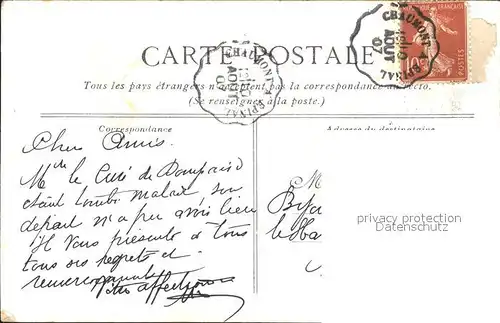 CARTE POSTALE
Tous les pays étrangers n'acceptent pas la correspondance au recto.
(Se renseigner à la poste.)
CHAUMONT A EPINAL
AOUT
07
CHAUMONT A EPINAL
AOUT
07
10
POSTES
Correspondance
Adresse du destinataire
Chers Amis.
Mr le Curé de Dompaire
étant tombé malade son
départ n'a pu avoir lieu
Il vous présente à tous
tous ses regrets et
remerciements
Votre affectionné
M
le
privacy protection
Datenschutz